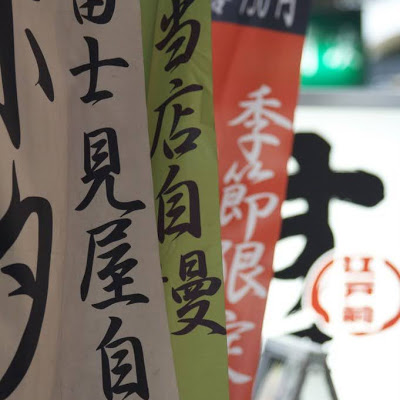 富士見屋自
当店自慢
季節限定
す
江戸前